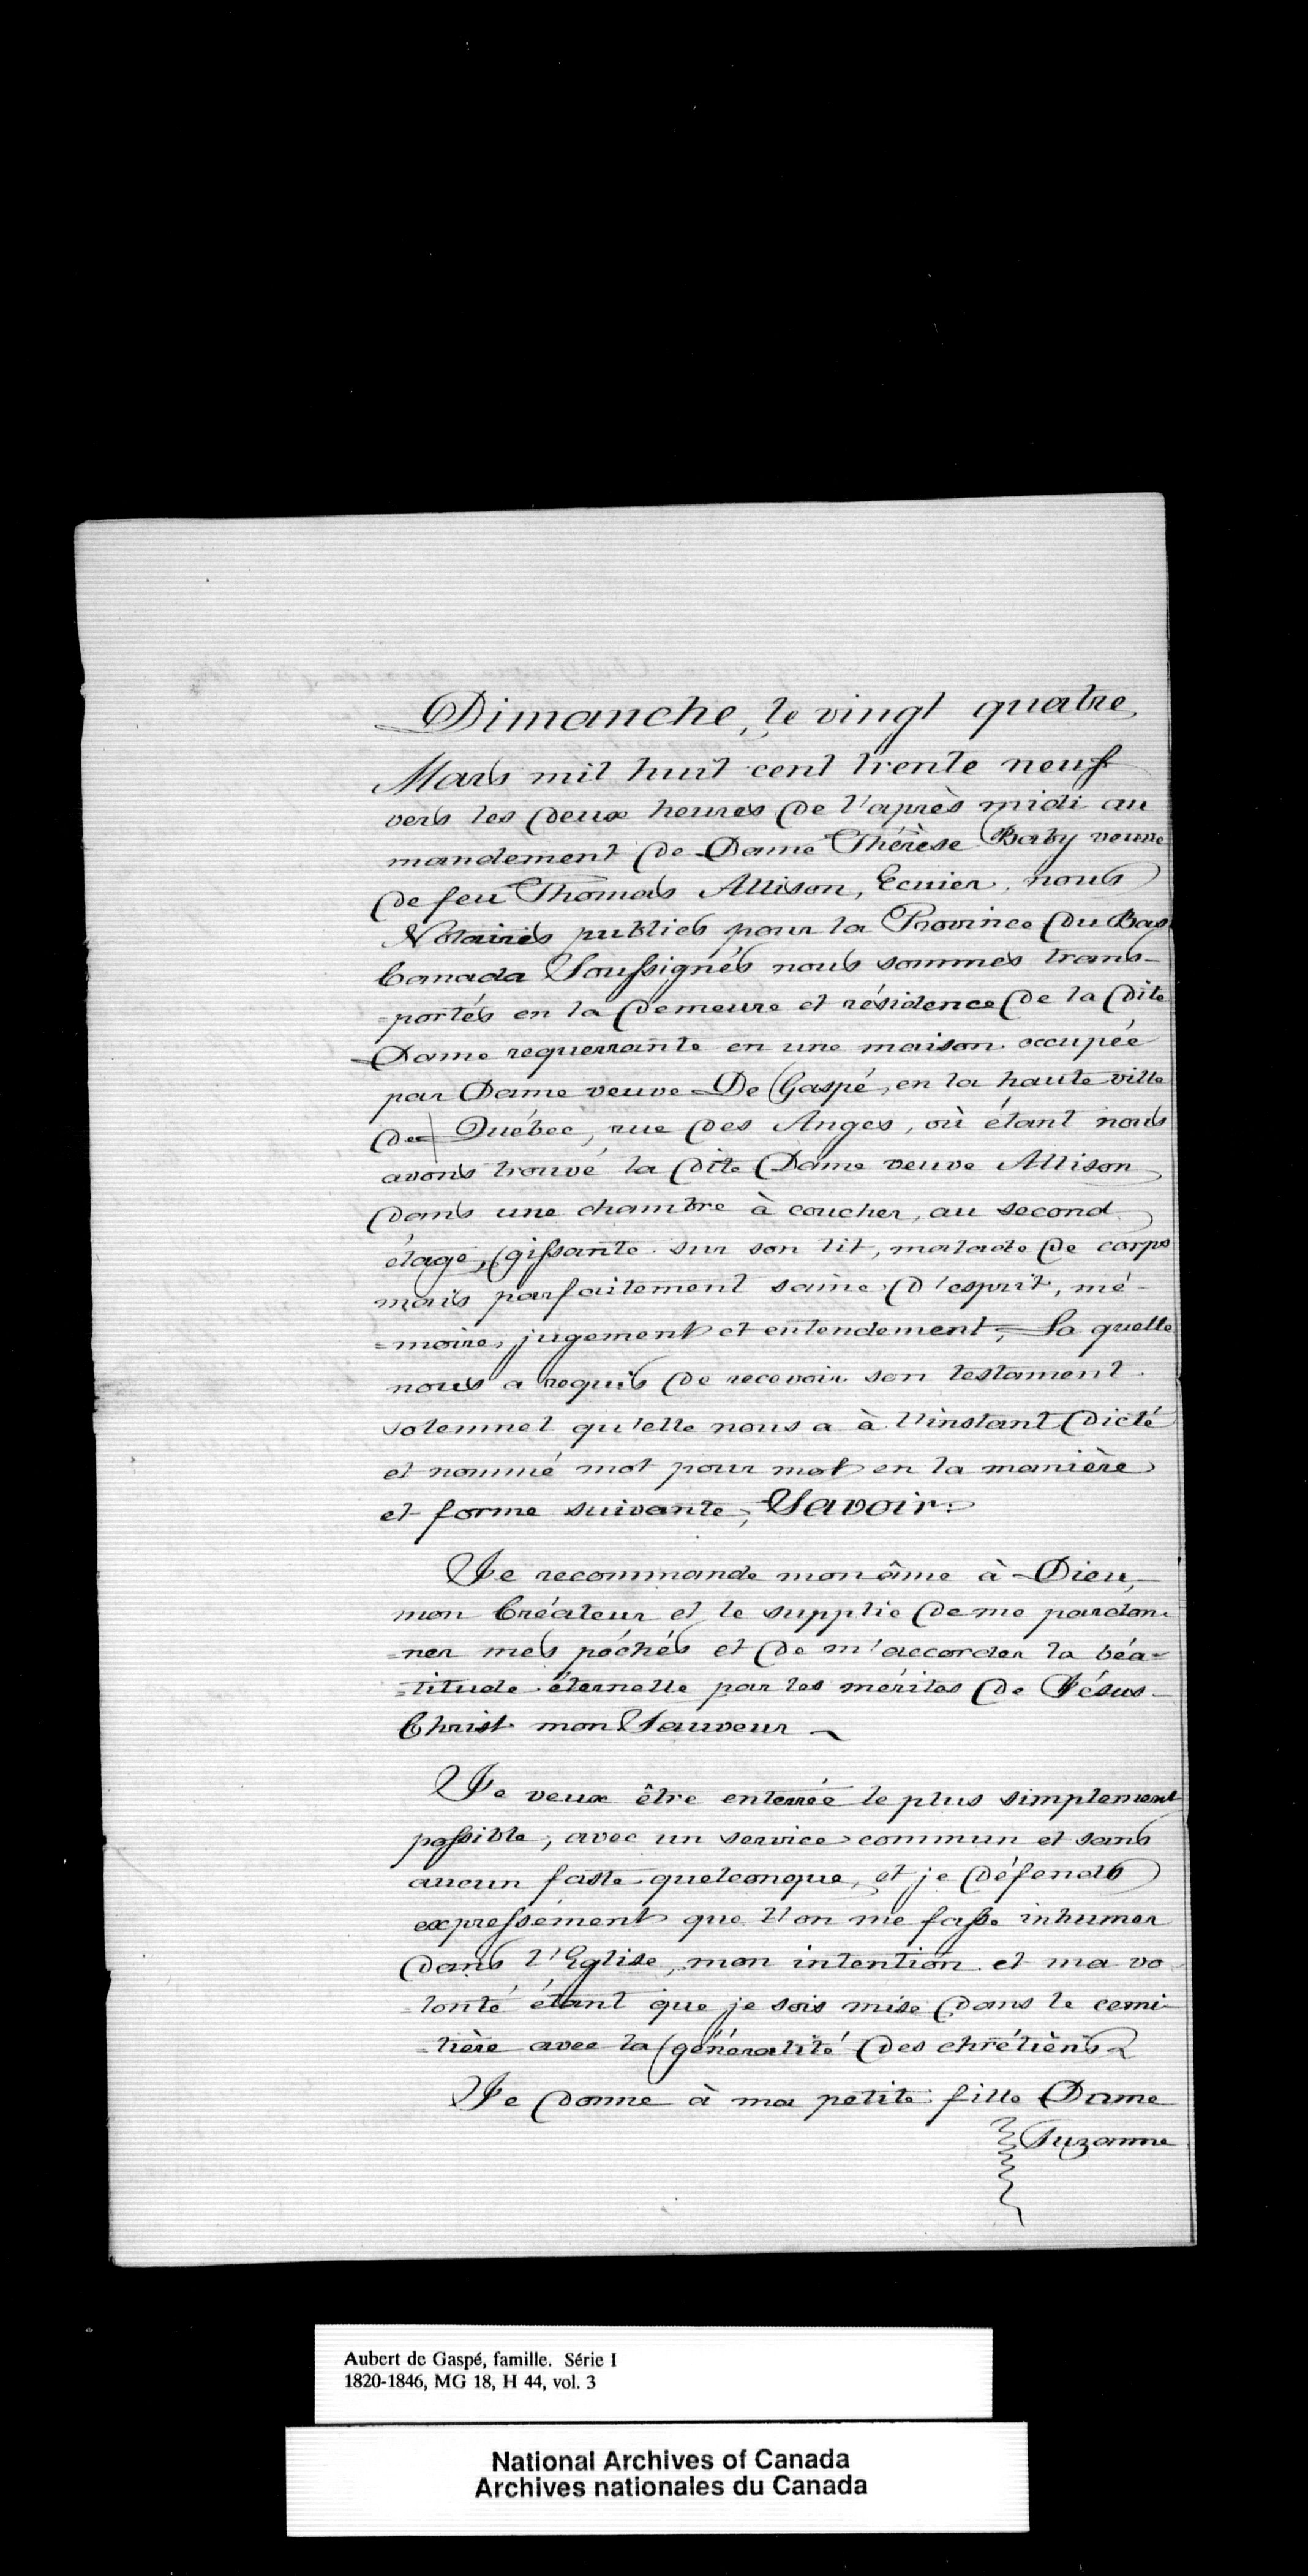 Dimanche, le vingt quatre
Mars mil huit cent trente neuf
vers les deux heures de l'après midi au
mandement de Dame Thérèse Baby veuve
de feu Thomas Allison, Ecuier, nous
Notaires publics pour la Province du Bas
Canada Soussignés nous sommes trans-
=portés en la demeure et résidence de la dite
Dame requerrante en une maison occupée
par Dame veuve De Gaspé, en la haute ville
de Québec, rue des Anges, où étant nous
avons trouvé la dite Dame veuve Allison
dans une chambre à coucher, au second
étage, gissante sur son lit, malade de corps
mais parfaitement saine d'esprit, mé-
=moire, jugement et entendement, La quelle
nous a requis de recevoir son testament
solemnel qu'elle nous a à l'instant dicté
et nommé mot pour mot en la manière
et forme suivante, Savoir:
Je recommande mon âme à Dieu,
mon Créateur et le supplie de me pardon-
=ner mes péchés et de m'accorder la béa-
=titude éternelle par les mérites de Jésus-
Christ mon Sauveur
Je veux être enterrée le plus simplement
possible, avec un service commun et sans
aucun faste quelconque, et je défends
expressément que l'on me fasse inhumer
dans l'Eglise, mon intention et ma vo
=lonté étant que je sois mise dans le cemi-
=tière avec la généralité des chrétiens
Je donne à ma petite fille Dame
Suzanne
Aubert de Gaspé, famille. Série I
1820-1846, MG 18, H 44, vol. 3
National Archives of Canada
Archives nationales du Canada